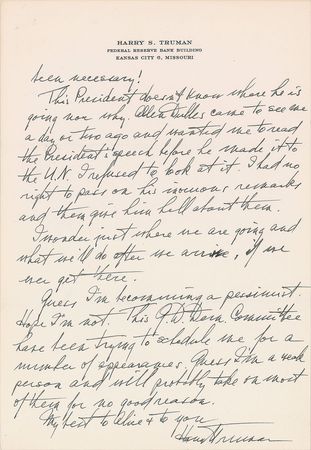 HARRY S. TRUMAN
FEDERAL RESERVE BANK BUILDING
KANSAS CITY 6, MISSOURI
been necessary!
This President doesn't know where he is
going nor why. Allen Dulles came to see me
a day or two ago and wanted me to read
the President's speech before he made it to
the U.N. I refused to look at it. I had no
right to pass on his remarks
and then give him hell about them.
I wonder just where we are going and
what we'll do after we arrive, if we
ever get there.
Guess I'm becoming a pessimist.
Hope I'm not. This Dem. Committee
have been trying to schedule me for a
number of appearances. Guess I'm a weak
person and will probably take on most
of them for no good reason.
My best to Alice & to you
Harry Truman